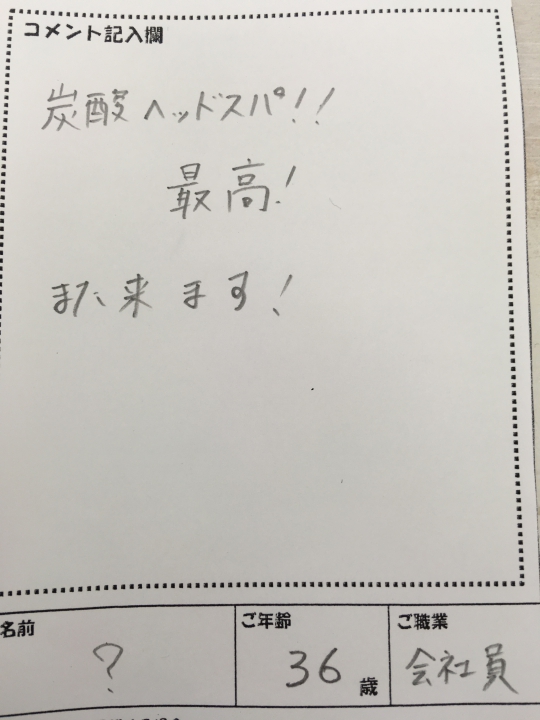 コメント記入欄
炭酸ヘッドスパ!!
最高!
また来ます!
名前
?
ご年齢
36歳
ご職業
会社員